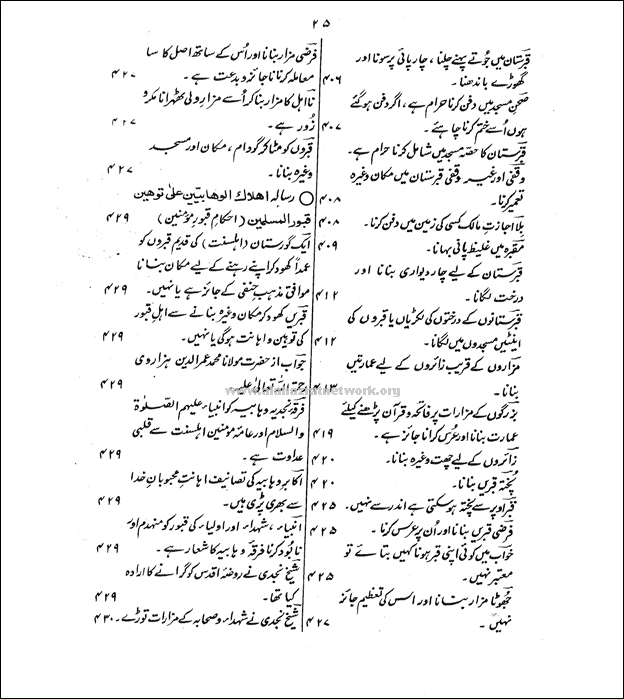 ۲۵
قبرستان میں جُوتے پہنے چلنا ، چارپائی پر سونا اور
گھوڑے باندھنا۔ ۴۰۶
صحنِ مسجد میں دفن کرنا حرام ہے ، اگر دفن ہوگئے
ہوں اُسے ختم کرنا چاہئے ۔ ۴۰۷
قبرستان کا حصہ مسجد میں شامل کرنا حرام ہے۔
وقفی اور غیر وقفی قبرستان میں مکان وغیرہ
تعمیر کرنا۔ ۴۰۸
بلا اجازتِ مالک کسی کی زمین میں دفن کرنا۔ ۴۰۸
مقبرہ میں غلیظ پانی بہانا۔ ۴۰۹
قبرستان کے لیے چار دیواری بنانا اور
درخت لگانا۔ ۴۱۲
قبرستانوں کے درختوں کی لکڑیاں یا قبروں کی
اینٹیں مسجدوں میں لگانا۔ ۴۱۲
مزاروں کے قریب زائروں کے لیے عمارتیں
بنانا۔ ۴۱۳
بزرگوں کے مزارات پر فاتحہ و قرآن پڑھنے کیلئے
عمارت بنانا اور عُرس کرانا جائز ہے۔ ۴۱۹
زائروں کے لیے چھت وغیرہ بنانا۔ ۴۲۰
پُختہ قبریں بنانا۔ ۴۲۰
قبر اوپر سے پختہ ہوسکتی ہے اندر سے نہیں۔ ۴۲۵
فرضی قبریں بنانا اور اُن پر عرس کرنا ۔ ۴۲۵
خواب میں کوئی اپنی قبر ہونا کہیں بتائے تو
معتبر نہیں۔ ۴۲۵
جھُوٹا مزار بنانا اور اس کی تعظیم جائز
نہیں ۔ ۴۲۷
فرضی مزار بنانا اور اُس کے ساتھ اصل کا سا
معاملہ کرنا ناجائز و بدعت ہے ۔ ۴۲۷
نااہل کا مزار بنا کر اُسے مزارِ ولی ٹھہرانا مکر و
زُور ہے ۔ ۴۲۷
قبروں کو مٹاکر گودام ، مکان اور مسجد
وغیرہ بنانا۔ ۴۲۷
○ رسالہ اھلاك الوھابیین علٰی توھین
قبور المسلمین (احکامِ قبورِ مؤمنین) ۴۲۹
ایک گورستان (اہلسنت) کی قدیم قبروں کو
عمداً کھود کر اپنے رہنے کے لیے مکان بنانا
موافق مذہبِ حنفی کے جائز ہے یا نہیں۔ ۴۲۹
قبریں کھود کر مکان وغیرہ بنانے سے اہلِ قبور
کی توہین و اہانت ہوگی یا نہیں۔ ۴۲۹
جواب از حضرت مولانا محمد عمر الدین ہزاروی
رحمۃ اللہ تعالٰی علیہ ۴۲۹
فرقہ نجدیہ وہابیہ کو انبیاء علیہم الصّلوٰۃ
والسلام اور عامۂ مؤمنین اہلسنت سے قلبی
عداوت ہے ۔ ۴۲۹
اکابر وہابیہ کی تصانیف اہانتِ محبوبانِ خدا
سے بھری پڑی ہیں۔ ۴۲۹
انبیاء ، شہداء اور اولیاء کی قبور کو منہدم اور
نابُود کرنا فرقہ وہابیہ کا شعار ہے ۔ ۴۲۹
شیخ نجدی نے روضۂ اقدس کو گرانے کا ارادہ
کیا تھا۔ ۴۲۹
شیخ نجدی نے شہداء و صحابہ کے مزارات توڑے۔ ۴۳۰